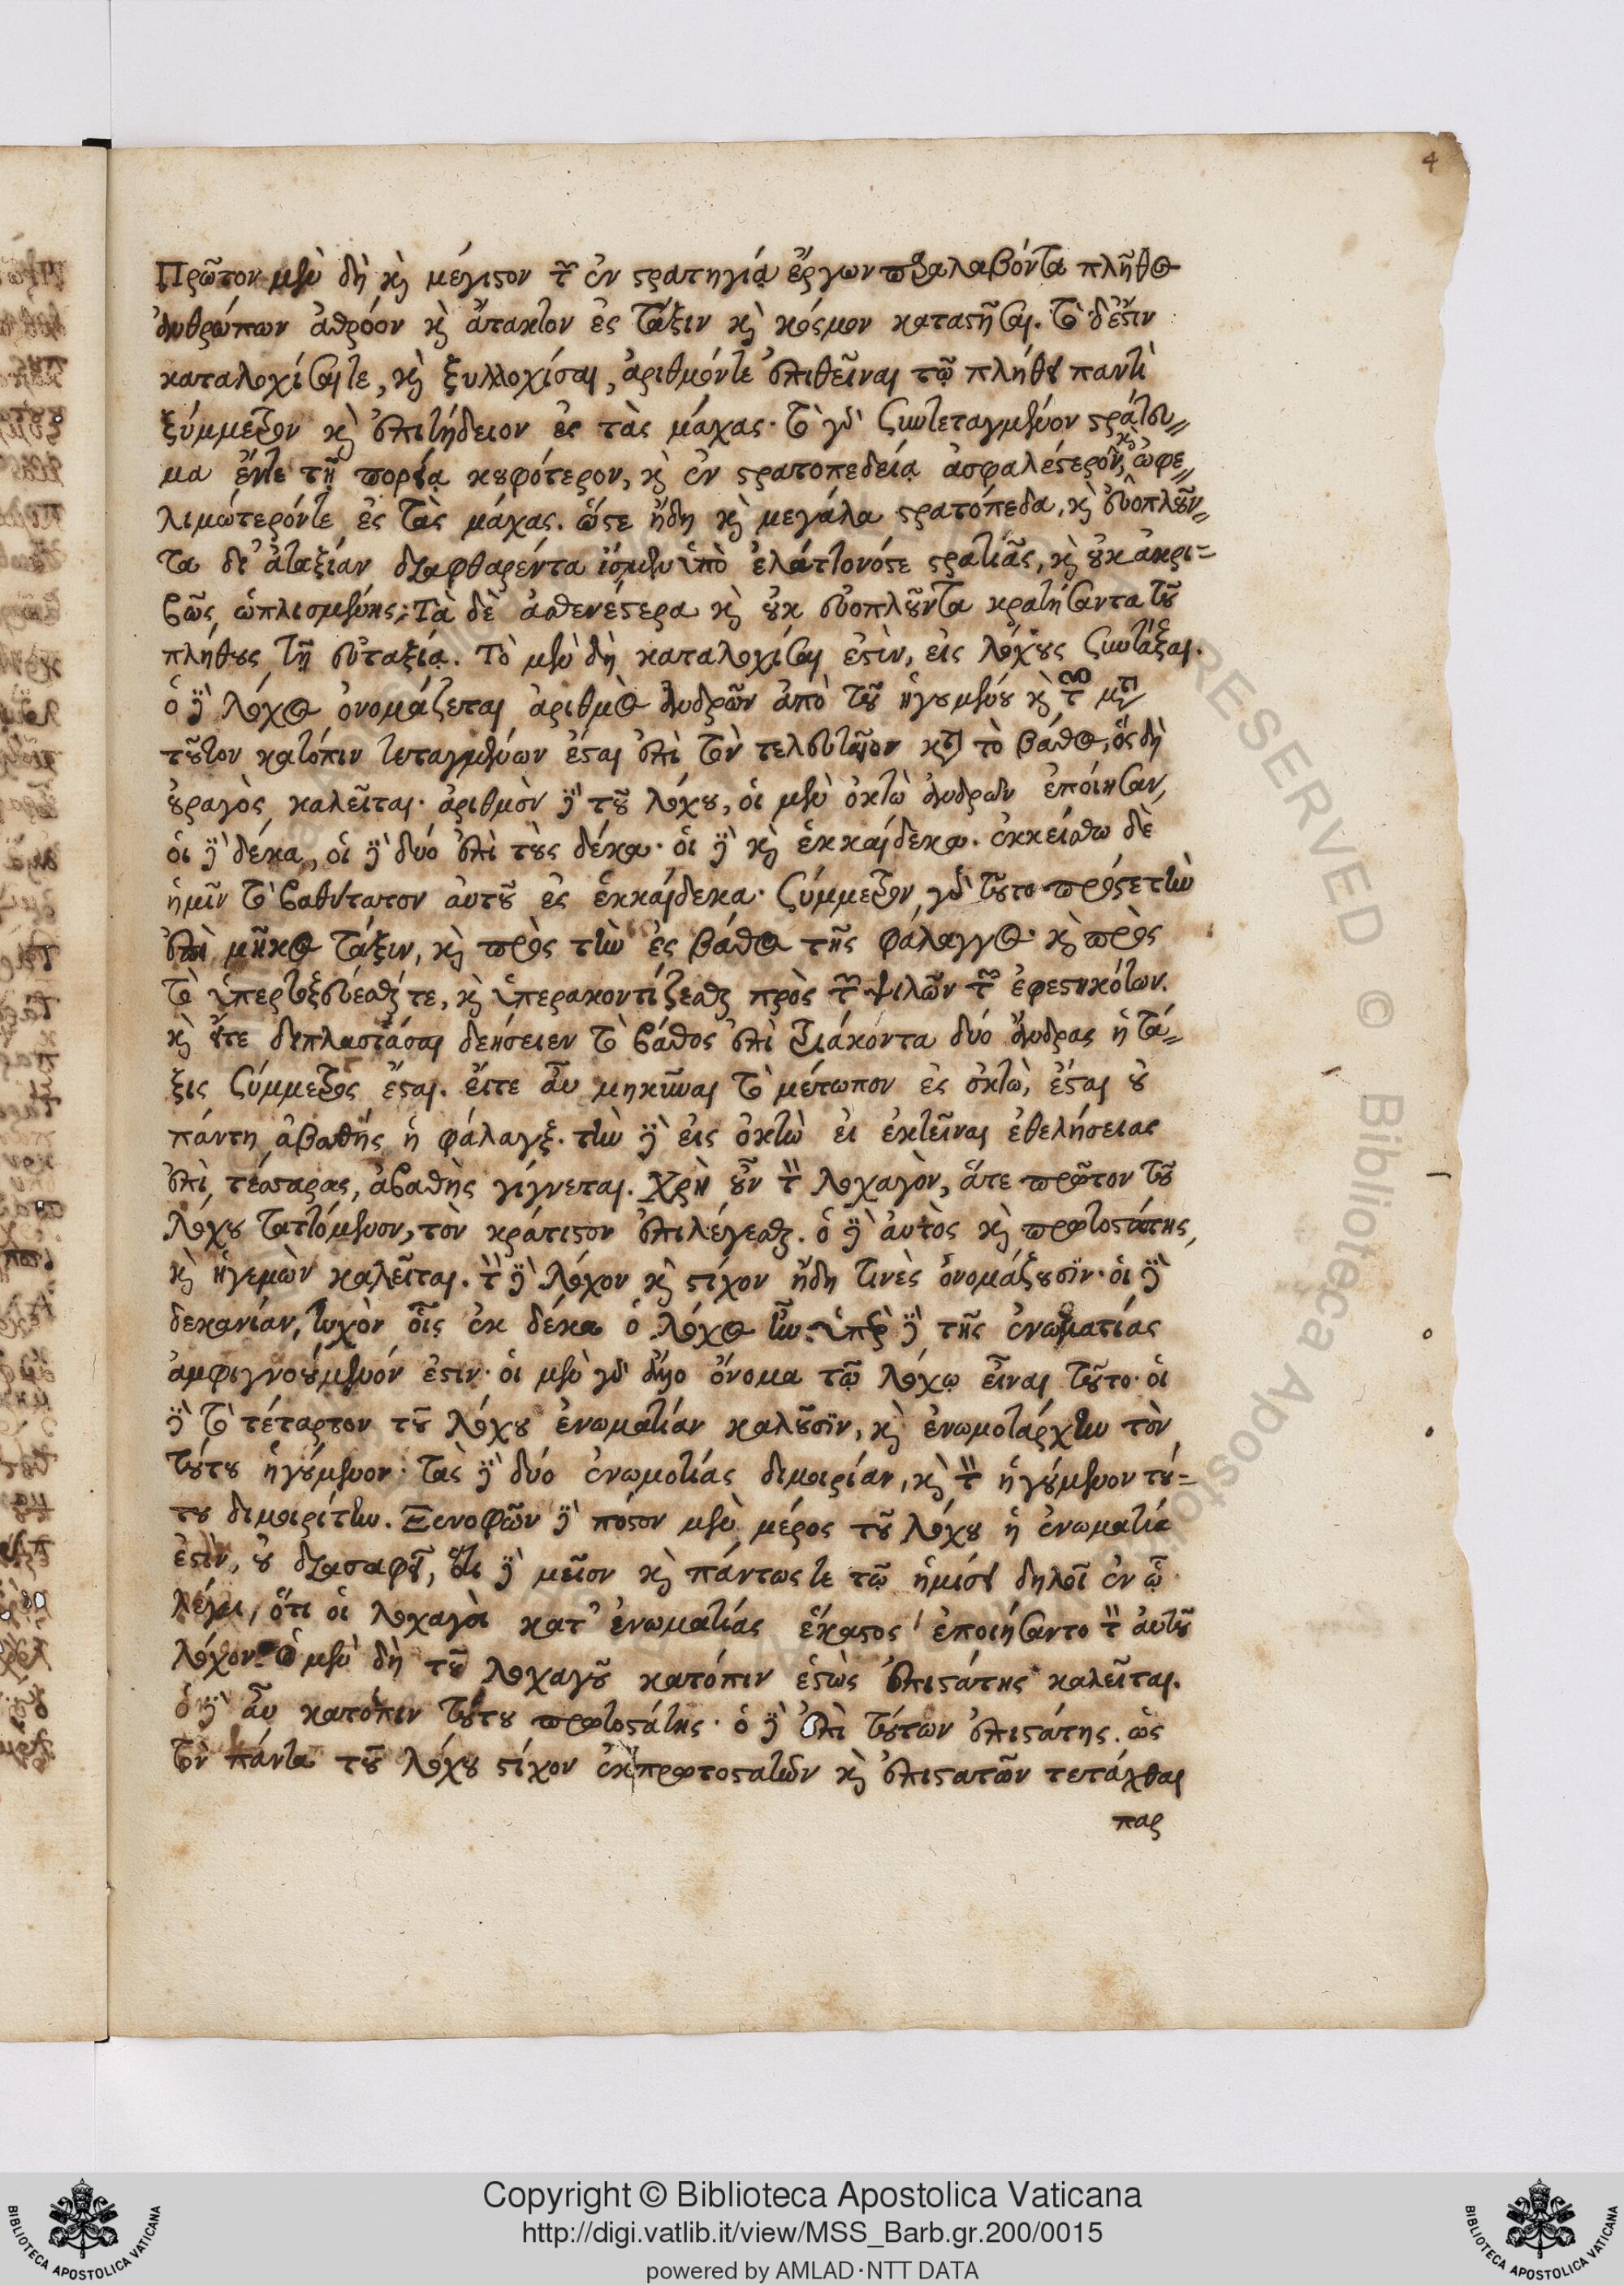 4
Πρῶτον μὲν δὴ καὶ μέγιστον τῶν ἐν στρατηγίᾳ ἔργων παραλαβόντα πλῆθος
ἀνθρώπων ἀθρόον καὶ ἄτακτον ἐς τάξιν καὶ κόσμον καταστῆσαι. τὸ δ' ἐστιν
καταλοχίσαι τε, καὶ ξυλλοχίσαι, ἀριθμόν τε ἐπιθεῖναι τῷ πλήθει παντὶ
ξύμμετρον καὶ ἐπιτήδειον ἐς τὰς μάχας. τὸ γὰρ συντεταγμένον στράτευ
μα ἔν τε τῇ πορείᾳ κουφότερον, καὶ ἐν στρατοπεδείᾳ ἀσφαλέστερον, καὶ ὠφε
λιμώτερόν τε ἐς τὰς μάχας. ὥστε ἤδη καὶ μεγάλα στρατόπεδα, καὶ εὐοπλοῦν
τα δι' ἀταξίαν διαφθαρέντα ἴσμεν ὑπὸ ἐλάττονός τε στρατιᾶς, καὶ οὐκ ἀκρι
βῶς ὡπλισμένης; Τὰ δὲ ἀσθενέστερα καὶ οὐκ εὐοπλοῦντα κρατήσαντα τοῦ
πλήθους τῇ εὐταξίᾳ. Τὸ μὲν δὴ καταλοχίσαι ἐστὶν, εἰς λόχους συντάξαι.
ὁ δὲ λόχος ὀνομάζεται ἀριθμὸς ἀνδρῶν ἀπὸ τοῦ ἡγουμένου καὶ τῶν μετὰ
τοῦτον κατόπιν τεταγμένων ἔσται ἐπὶ τὸν τελευταῖον κατὰ τὸ βάθος, ὃς δὴ
οὐραγὸς καλεῖται. ἀριθμὸν δὲ τοῦ λόχου, οἱ μὲν ὀκτὼ ἀνδρῶν ἐποίησαν,
οἱ δὲ δέκα, οἱ δὲ δύο ἐπὶ τοὺς δέκα. οἱ δὲ καὶ ἑκκαίδεκα. ἐκκείσθω δὲ
ἡμῖν τὸ βαθύτατον αὐτοῦ ἐς ἑκκαίδεκα. ξύμμετρον γὰρ τοῦτο πρός τε τὴν
ἐπὶ μῆκος τάξιν, καὶ πρὸς τὴν ἐς βάθος τῆς φάλαγγος. καὶ πρὸς
τὸ ὑπερτοξεύεσθαί τε, καὶ ὑπερακοντίζεσθαι πρὸς τῶν ψιλῶν τῶν ἐφεστηκότων.
καὶ εἴτε διπλασιάσαι δεήσειεν τὸ βάθος ἐπὶ τριάκοντα δύο ἄνδρας ἡ τά
ξις ξύμμετρος ἔσται. εἴτε αὖ μηκῦναι τὸ μέτωπον ἐς ὀκτὼ, ἔσται οὐ
πάντη ἀβαθής ἡ φάλαγξ. τὴν δὲ εἰς ὀκτὼ εἰ ἐκτεῖναι ἐθελήσειας
ἐπὶ τέσσαρας, ἀβαθὴς γίγνεται. Χρὴ οὖν τὸν λοχαγὸν, ἅτε πρῶτον τοῦ
λόχου ταττόμενον, τὸν κράτιστον ἐπιλέγεσθαι. ὁ δὲ αὐτὸς καὶ πρωτοστάτης,
καὶ ἡγεμὼν καλεῖται. τὸν δὲ λόχον καὶ στίχον ἤδη τινὲς ὀνομάζουσιν. οἱ δὲ
δεκανίαν, τυχὸν οἷς ἐκ δέκα ὁ λόχος ἦν. ὑπὲρ δὲ τῆς ἐνωματίας
ἀμφιγνοούμενόν ἐστιν. οἱ μὲν γὰρ ἄλλο ὄνομα τῷ λόχῳ εἶναι τοῦτο. οἱ
δὲ τὸ τέταρτον τοῦ λόχου ἐνωματίαν καλοῦσιν, καὶ ἐνωμοτάρχην τὸν
τούτου ἡγούμενον. τὰς δὲ δύο ἐνωμοτίας διμοιρίαν, καὶ τὸν ἡγούμενον τού
του διμοιρίτην. Ξενοφῶν δὲ πόσον μὲν μέρος τοῦ λόχου ἡ ἐνωματία
ἐστὶν, οὐ διασαφεῖ, ὅτι δὲ μεῖον καὶ πάντως τε τῷ ἡμίσει δηλοῖ ἐν ᾧ
λέγει, ὅτι οἱ λοχαγοὶ κατ' ἐνωματίας ἕκαστος ἐποιήσαντο τὸν αὐτοῦ
λόχον. Ὁ μὲν δὴ τοῦ λοχαγοῦ κατόπιν ἑστὼς ἐπιστάτης καλεῖται.
ὁ δὲ αὖ κατόπιν τούτου πρωτοστάτης. ὁ δὲ ἐπὶ τούτων ἐπιστάτης. ὡς
τὸν πάντα τοῦ λόχου στίχον ἐκ πρωτοστατῶν καὶ ἐπιστατῶν τετάχθαι
παρ
RESERVED © Biblioteca Apostolica
Copyright © Biblioteca Apostolica Vaticana
http://digi.vatlib.it/view/MSS_Barb.gr.200/0015
powered by AMLAD·NTT DATA
BIBLIOTECA APOSTOLICA VATICANA
BIBLIOTECA APOSTOLICA VATICANA